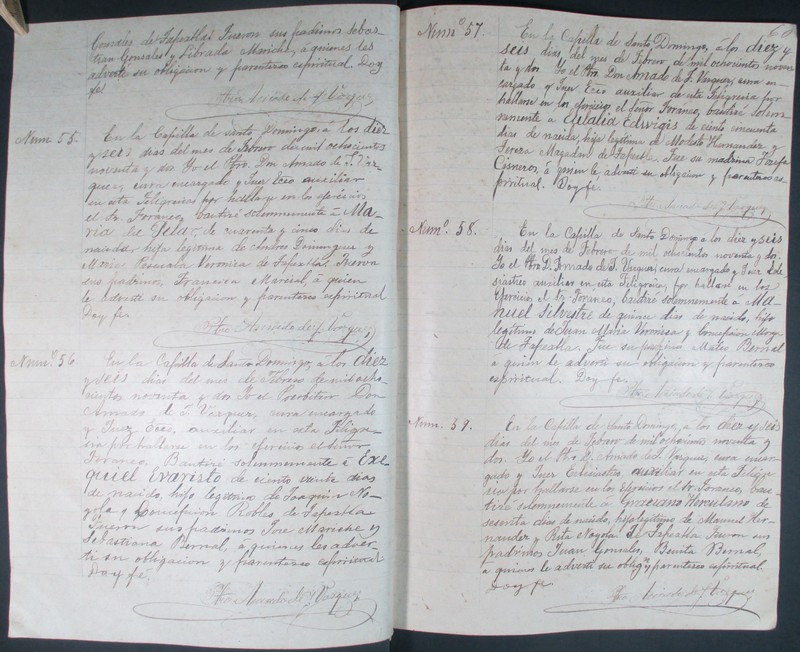 Gonzáles de Tapextla: Fueron sus padrinos Sebas-
tian Gonzales y Librada Mariche, á quienes les
advertí su obligacion y parentesco espiritual. Doy
fé.
Num. 55.
En la Capilla de Santo Domingo, á los diez
y seis dias del mes de Febrero de mil ochocientos
noventa y dos Yo el Pbro. Don Amado de J. Váz-
quez, cura encargado y Juez Ecco auxiliar
en esta Feligresia por hallarse en los ejercicios
el Sr. Foraneo, bautizé solemnemente á Ma-
ria del Pilar, de cuarenta y cinco dias de
nacida, hija legitima de Andres Dominguez y
Maria Pascuala Veronica de Tapextla. Fueron
sus padrinos, Francisca Marcial, á quien
le advertí su obligacion y parentesco espiritual
Doy fé.
Num. 56.
En la Capilla de Santo Domingo, á los diez
y seis dias del mes de Febrero de mil ocho-
cientos noventa y dos Yo el Presbitero Don
Amado de J. Vazquez, cura encargado
y Juez Ecco, auxiliar en esta Feligre-
sia por hallarse en los ejercicios el Señor
Foraneo, Bautizé solemnemente á Exe
quiel Evaristo de ciento veinte dias
de nacido, hijo legitimo de Joaquin No-
yola y Concepcion Robles de Tapextla
Fueron sus padrinos Jose Mariche y
Sebastiana Bernal, á quienes les adver-
ti su obligacion y parentesco espiritual
Doy fé.
Num. 57.
En la Capilla de Santo Domingo, á los diez y
seis dias del mes de Febrero de mil ochocientos noven
ta y dos Yo el Pbro. Don Amado de J. Vazquez, cura en-
cargado y Juez Ecco auxiliar de esta Feligresia por
hallarse en los ejercicios el Señor Foraneo, bautizé solem
nemente a Eulalia Eduvigis de ciento cincuenta
dias de nacida, hija legitima de Modesto Hernandez y
Teresa de Tapextla Fue su madrina Josefa
Cisneros, á quien le advertí su obligacion y parentesco es-
piritual. Doy fe.
Num. 58.
En la Capilla de Santo Domingo á los diez y seis
dias del mes de Febrero de mil ochocientos noventa y dos.
Yo el Pbro D. Amado de J. Vazquez, cura encargado y Juez Ecle
siastico auxiliar en esta Feligresia, por hallarse en los
Ejercicios el Sr. Foraneo, bautizé solemnemente á Ma-
nuel Silvestre de quince dias de nacido, hijo
legitimo de Juan Maria y Concepcion
de Tapextla. Fue su padrino Mateo Bernal
á quien le advertí su obligacion y parentesco
espiritual. Doy fe.
Num. 59.
En la Capilla de Santo Domingo, á los diez y seis
dias del mes de Febrero de mil ochocientos noventa y
dos. Yo el Pbro. D. Amado de J. Vazquez, cura encar-
gado y Juez Eclesiastico, auxiliar en esta Feligre
sia por hallarse en los Ejercicios el Sr. Foraneo, bau-
tizé solemnemente á Graciano Herculano de
sesenta dias de nacido, hijo legitimo de Manuel Her-
nandez y Rita Noyola de Tapextla Fueron sus
padrinos Juan Gonzales, Benita Bernal,
á quienes le advertí su oblign y parentesco espiritual.
Doy fe.